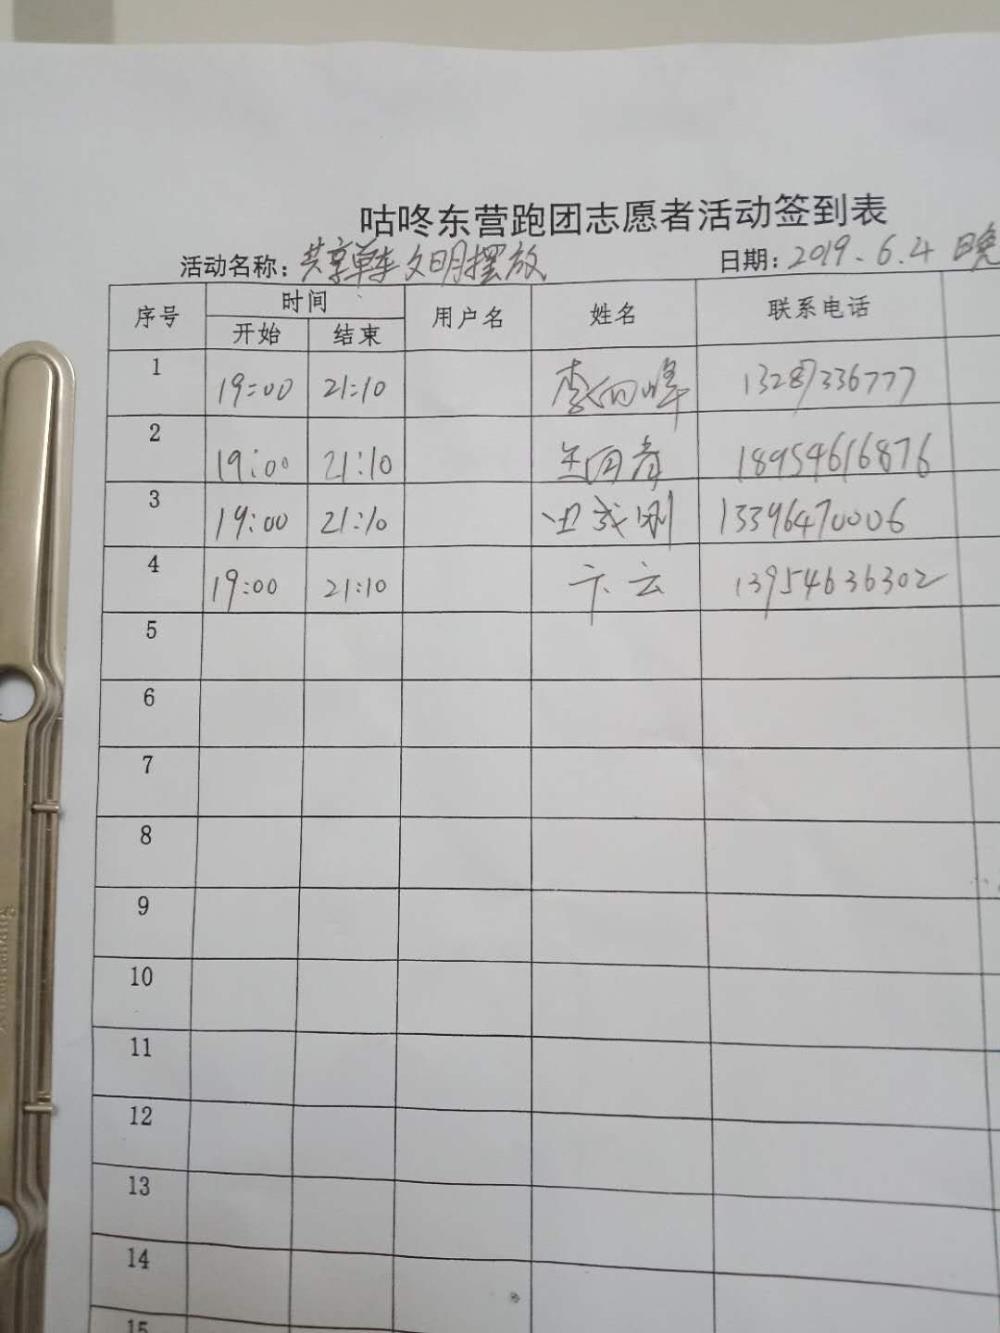 咕咚东营跑团志愿者活动签到表
活动名称：共享单车文明摆放 日期：2019.6.4 晚
序号 时间 用户名 姓名 联系电话
开始 结束
1 19:00 21:10 李向峰 13287336777
2 19:00 21:10 18954616876
3 19:00 21:10 13396470006
4 19:00 21:10 卞云 13954636302
5
6
7
8
9
10
11
12
13
14
15